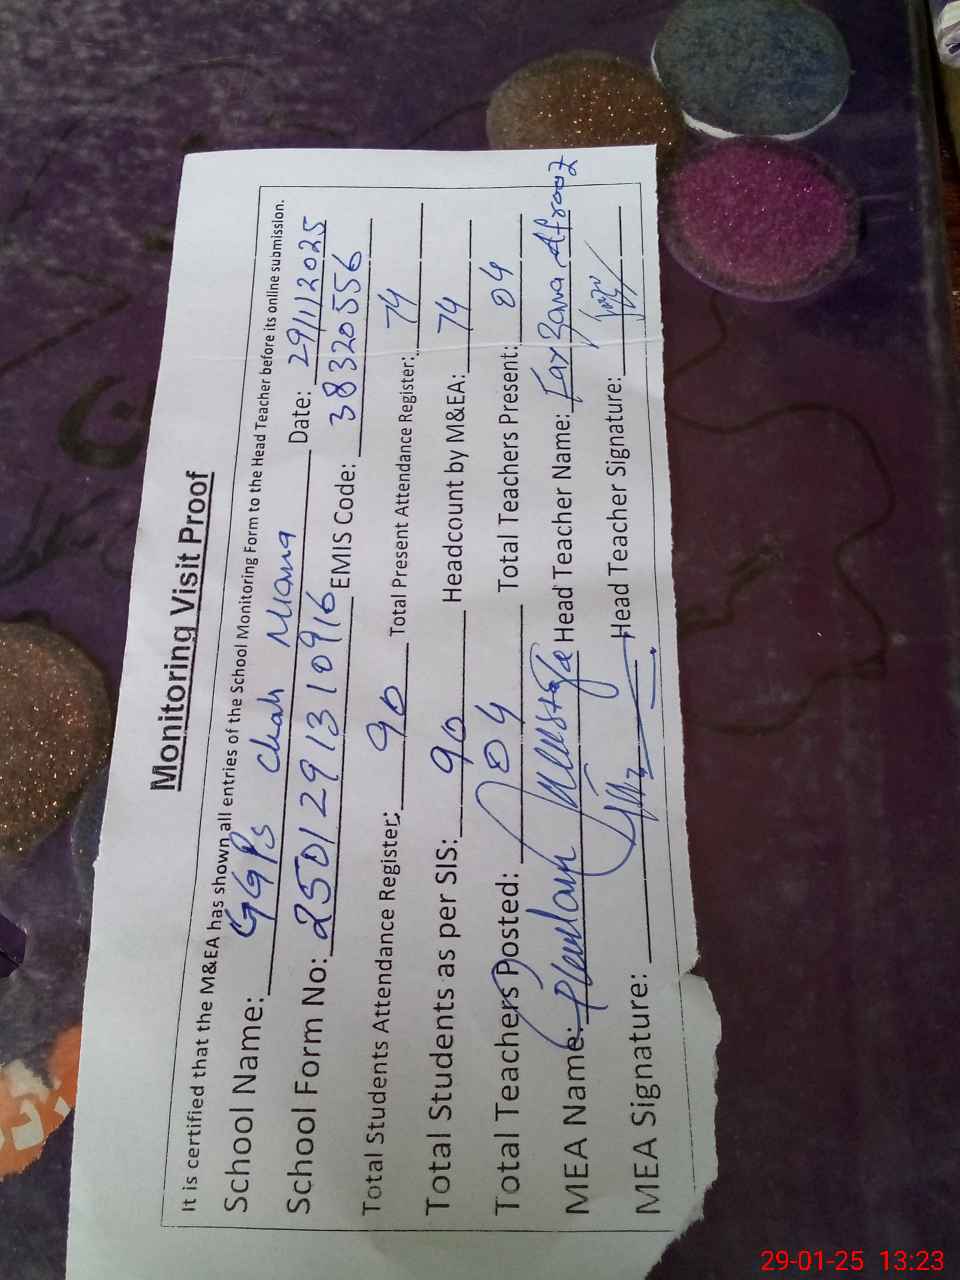 Monitoring Visit Proof
It is certified that the M&EA has shown all entries of the School Monitoring Form to the Head Teacher before its online submission.
School Name: GGPS chah Miana Date: 29/1/2025
School Form No: 2501291310916 EMIS Code: 38320556
Total Students Attendance Register: 90 Total Present Attendance Register: 74
Total Students as per SIS: 90 Headcount by M&EA: 74
Total Teachers Posted: 04 Total Teachers Present: 04
MEA Name: Mustafa Head Teacher Name: Farzana Afrooz
MEA Signature: Head Teacher Signature:
29-01-25 13:23